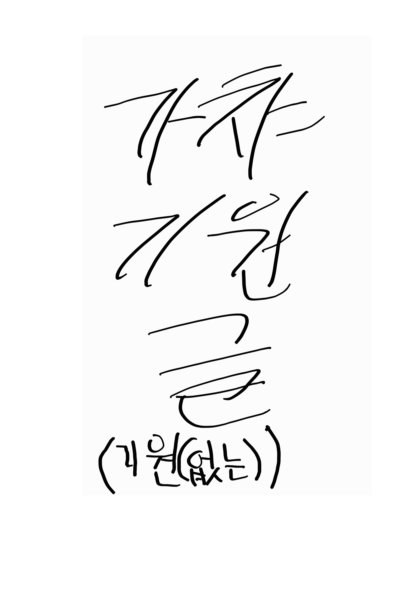 가챠
기원
글
(기원(없는))